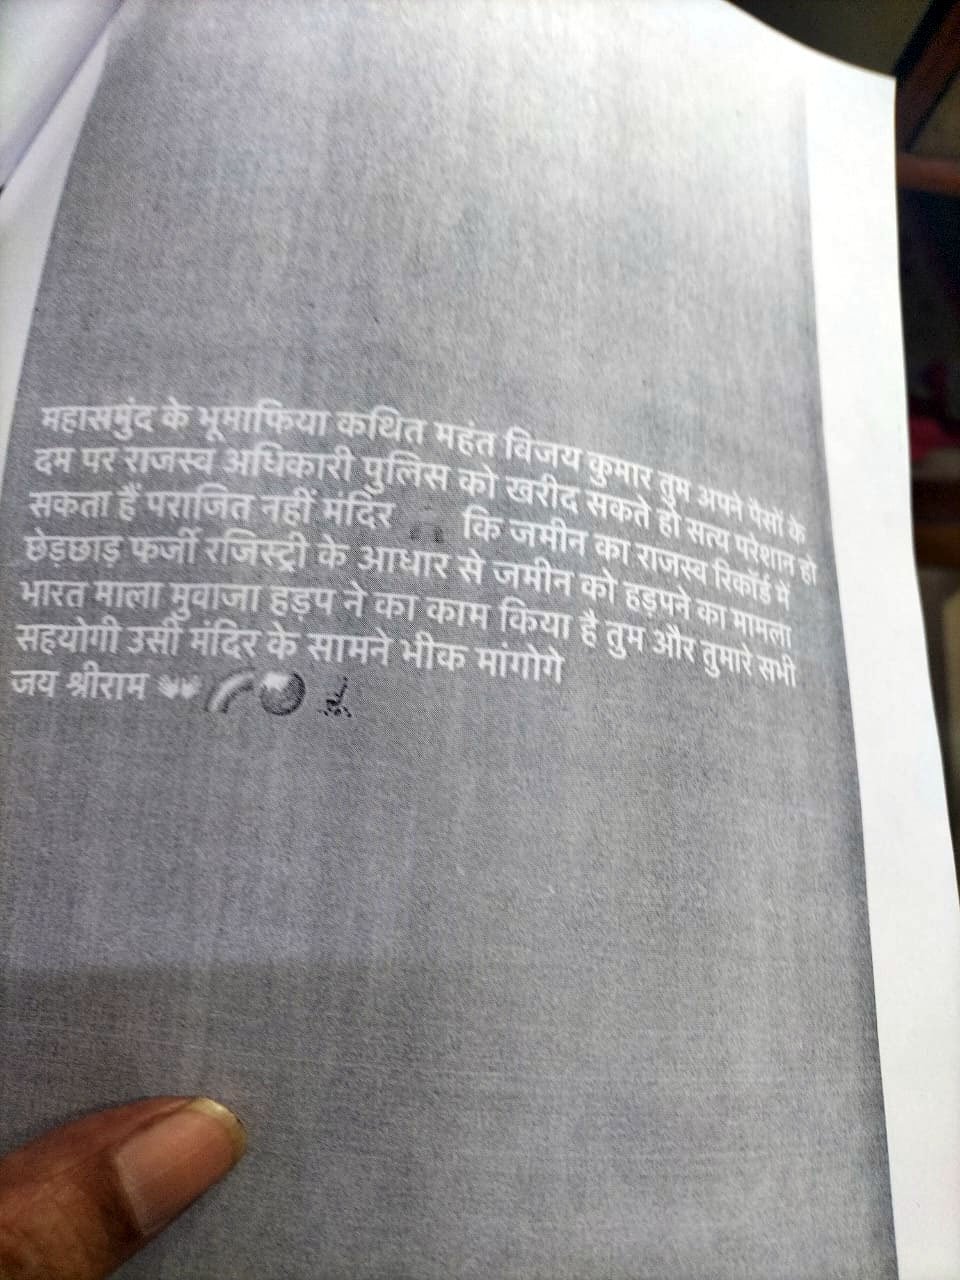 महासमुंद के भूमाफिया कथित महंत विजय कुमार तुम अपने पैसों के
दम पर राजस्व अधिकारी पुलिस को खरीद सकते हो सत्य परेशान हो
सकता हैं पराजित नहीं मंदिर कि जमीन का राजस्व रिकॉर्ड में
छेड़छाड़ फर्जी रजिस्ट्री के आधार से जमीन को हड़पने का मामला
भारत माला मुवाजा हड़प ने का काम किया है तुम और तुमारे सभी
सहयोगी उसी मंदिर के सामने भीक मांगोगे
जय श्रीराम